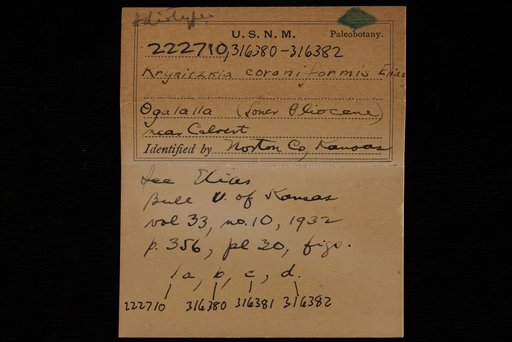 Idiotypes
U. S. N. M.
Paleobotany.
222710, 316380-316382
Krynitzkia coroniformis Elias
Ogalalla (Lower Pliocene)
near Calvert
Identified by Norton Co, Kansas
See Elias
Bull U. of Kansas
vol 33, no. 10, 1932
p. 356, pl 30, figs.
1a, b, c, d.
222710 316380 316381 316382